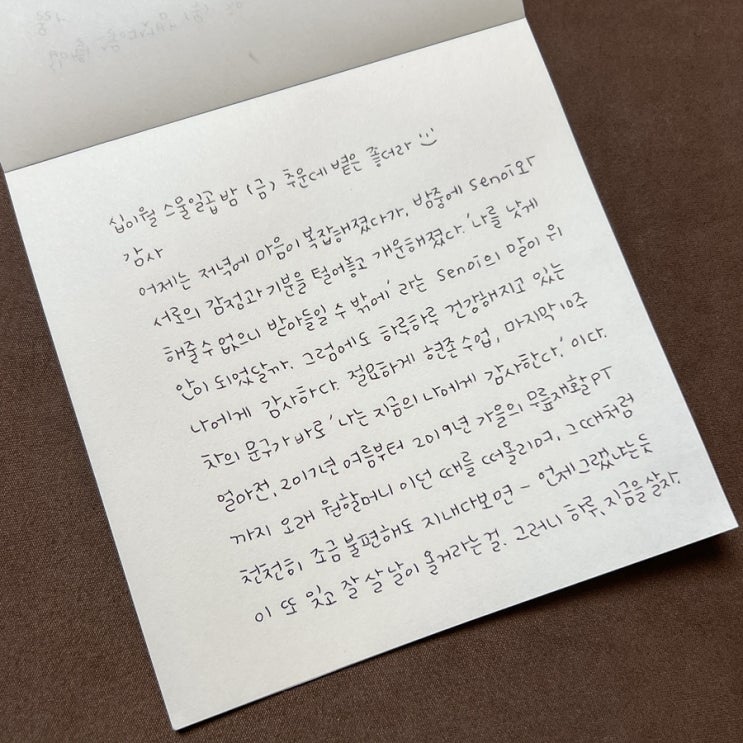 십이월 스물일곱 밤 (금) 추운데 볕은 좋더라 :)
감사
어제는 저녁에 마음이 복잡해졌다가, 밤중에 senoï와
서로의 감정과 기분을 털어놓고 개운해졌다. '나를 낫게
해줄 수 없으니 받아들일 수 밖에' 라는 senoï의 말이 위
안이 되었달까. 그럼에도 하루하루 건강해지고 있는
나에게 감사하다. 절묘하게 현존수업, 마지막 10주
차의 문구가 바로 '나는 지금의 나에게 감사한다.' 이다.
얼마전, 2017년 여름부터 2019년 가을의 무릎재활PT
까지 오래 원할머니 이던 때를 떠올리며, 그때처럼
천천히 조금 불편해도 지내다보면 – 언제 그랬냐는 듯
이 또 잊고 잘 살 날이 올거라는 걸. 그러니 하루, 지금을 살자.